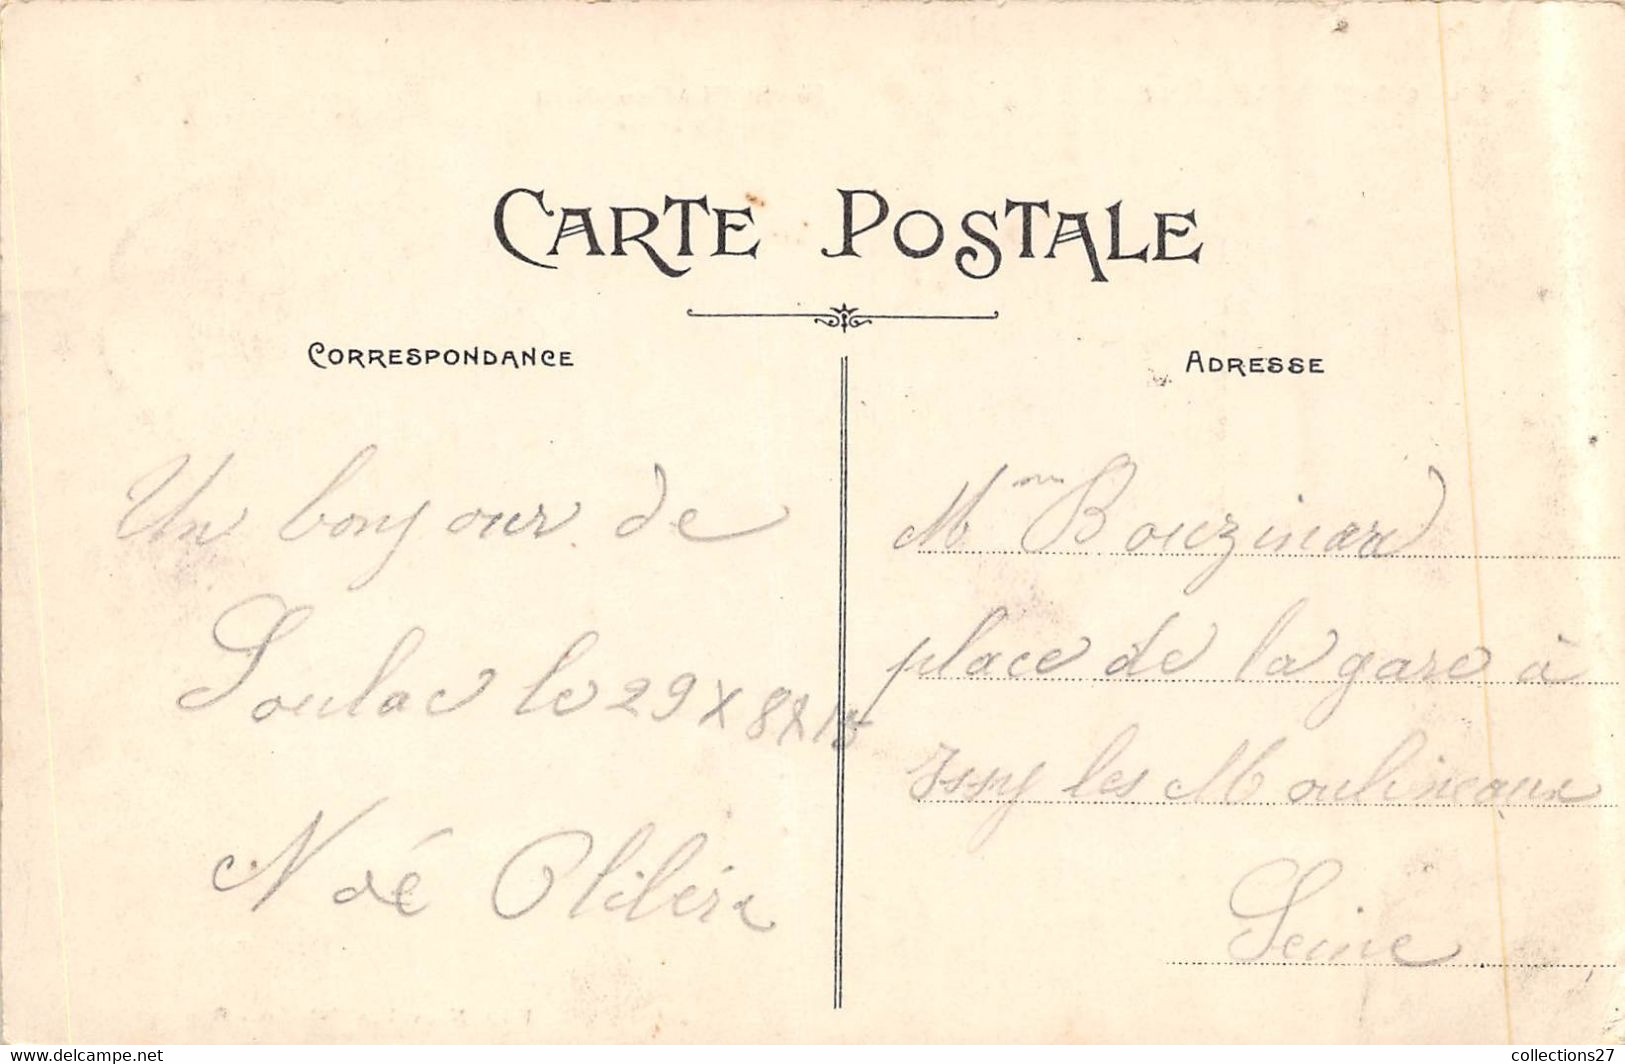 CARTE POSTALE
CORRESPONDANCE
Un bonjour de
Soulac le 29 x 8 x 15
Noé
ADRESSE
Mme Bouzinard
place de la gare à
Issy les Moulineaux
Seine
https://www.delcampe.net
collections27